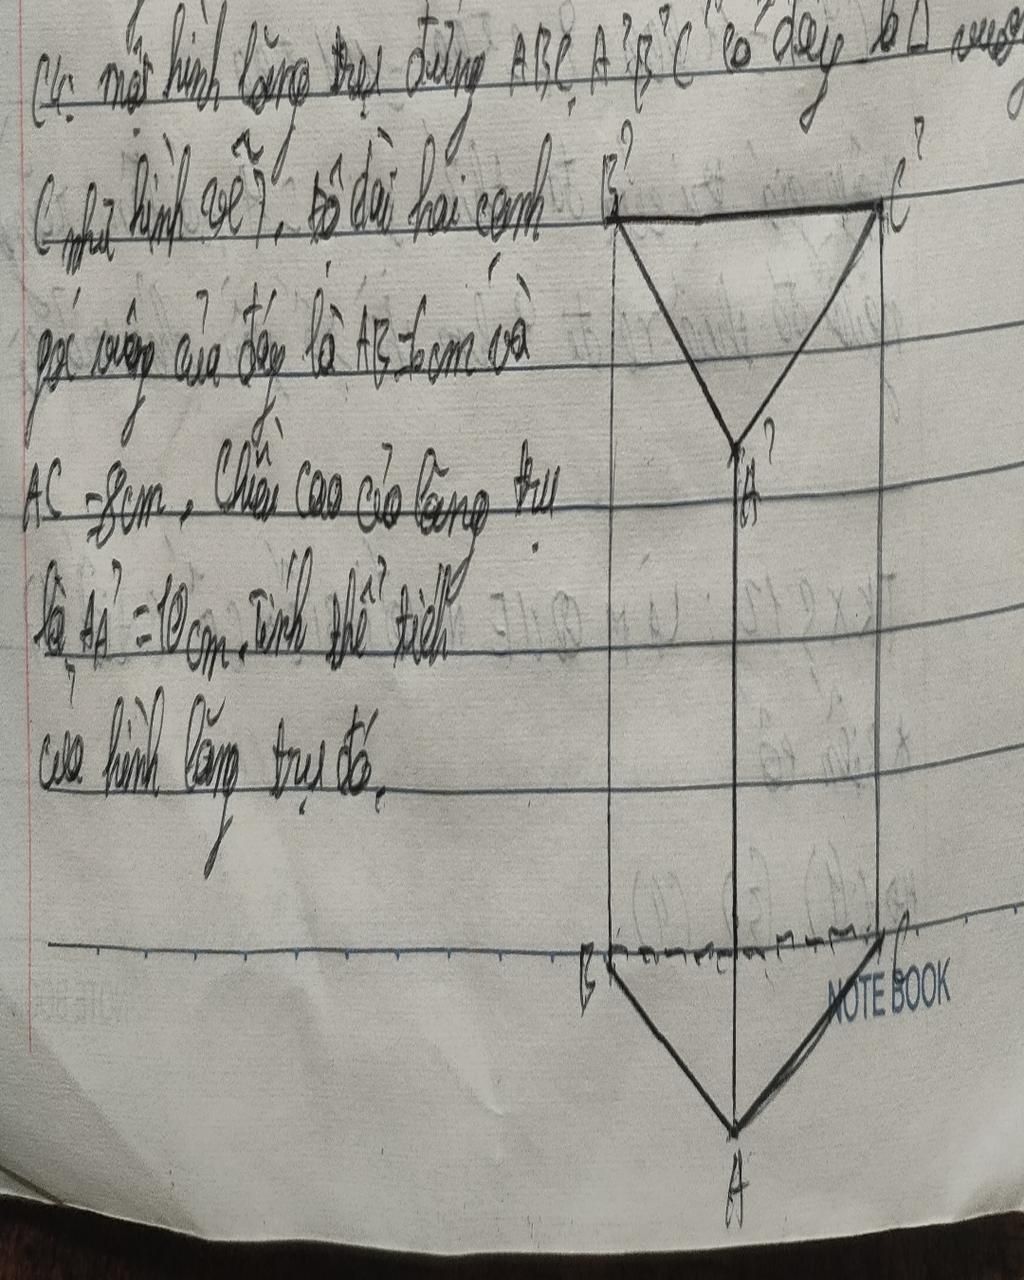 C4: một hình lăng trụ đứng ABC.A'B'C' có đáy là Δ vuông
( như hình vẽ ). Độ dài hai cạnh
góc vuông của đáy là AB=6cm và
AC =8cm, Chiều cao của lăng trụ
là AA' =10cm. Tính thể tích
của hình lăng trụ đó.
B' C'
A'
B C
NOTE BOOK
A